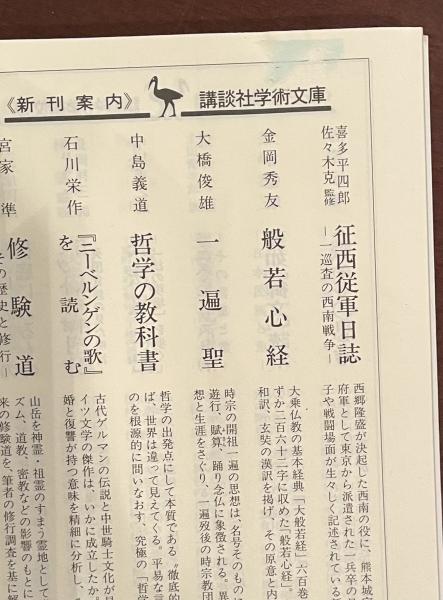 《新刊案内》
講談社学術文庫
喜多平四郎
佐々木克 監修
征西従軍日誌
―一巡査の西南戦争―
西郷隆盛が決起した西南の役に、熊本城
府軍として東京から派遣された一兵卒の
子や戦闘場面が生々しく記述されている
金岡秀友
般若心経
大乗仏教の基本経典「大般若経」六百巻
ずか二百六十二字に収めた「般若心経」。
和訳、玄奘の漢訳を掲げ、その原意と内
大橋俊雄
一遍聖
時宗の開祖一遍の思想は、名号そのもの
遊行、賦算、踊り念仏に象徴される。異
想と生涯をさぐり、一遍歿後の時宗教団
中島義道
哲学の教科書
哲学の出発点にして本質である〝徹底的
ば、世界は違って見えてくる。平易な言
のを根源的に問いなおす、究極の「哲学
石川栄作
『ニーベルンゲンの歌』
を読む
古代ゲルマンの伝説と中世騎士文化が
イツ文学の傑作は、いかに成立したか。
婚と復讐が持つ意味を精細に分析し、
宮家準
修験道
その歴史と修行―
山岳を神霊・祖霊のすまう霊地として
ズム、道教、密教などの影響のもとに
来の修験道を、筆者の修行調査を基に解